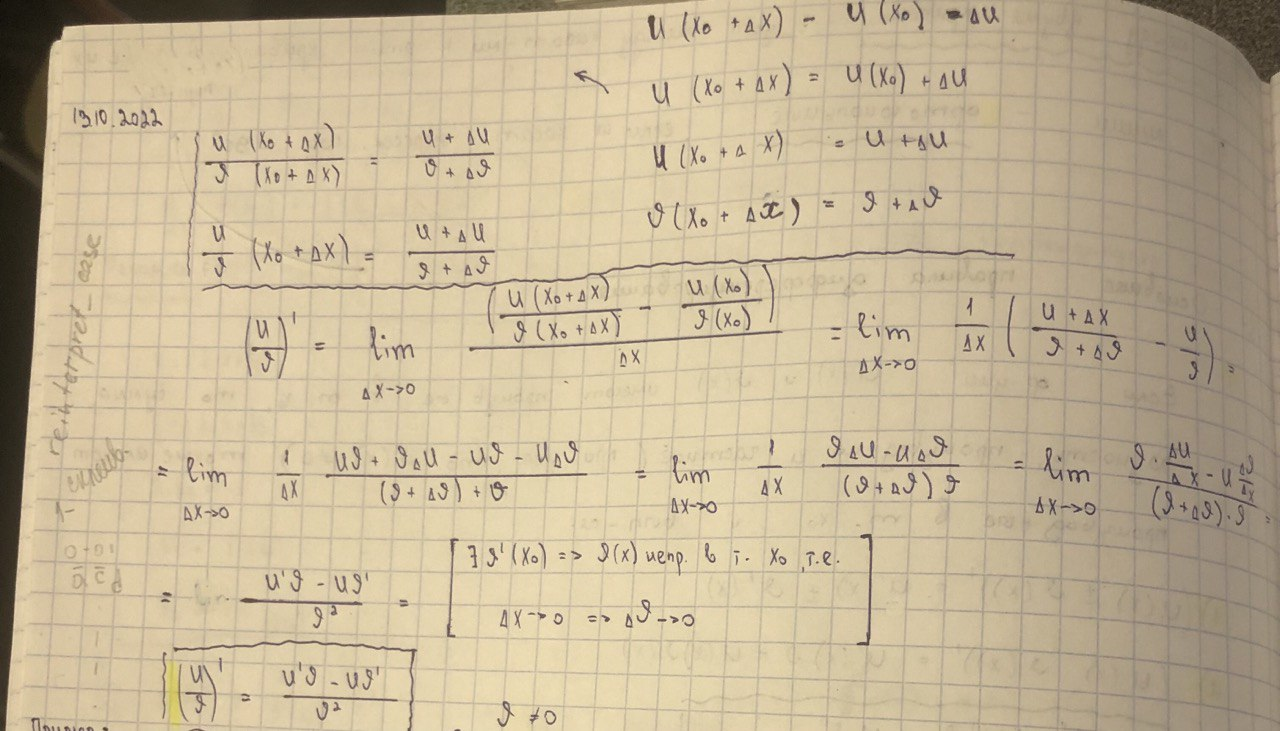 U (x₀ + Δx) - U (x₀) = ΔU
U (x₀ + Δx) = U(x₀) + ΔU
13.10.2022
U (x₀ + Δx) / ϑ (x₀ + Δx) = (U + ΔU) / (ϑ + Δϑ)
U (x₀ + Δx) = U + ΔU
ϑ (x₀ + Δx) = ϑ + Δϑ
U/ϑ (x₀ + Δx) = (U + ΔU) / (ϑ + Δϑ)
(U/ϑ)' = lim Δx→0 (U(x₀+Δx) / ϑ(x₀+Δx) - U(x₀) / ϑ(x₀)) / Δx = lim Δx→0 1/Δx ((U + Δx) / (ϑ + Δϑ) - U/ϑ) =
= lim Δx→0 1/Δx (Uϑ + ϑΔU - Uϑ - UΔϑ) / ((ϑ + Δϑ) + ϑ) = lim Δx→0 1/Δx (ϑΔU - UΔϑ) / ((ϑ + Δϑ) ϑ) = lim Δx→0 (ϑ · ΔU/Δx - U Δϑ/Δx) / ((ϑ + Δϑ) · ϑ) =
= (U'ϑ - Uϑ') / ϑ² = [∃ ϑ'(x₀) => ϑ(x) непр. в т. x₀, т.е.
Δx→0 => Δϑ→0]
(U/ϑ)' = (U'ϑ - Uϑ') / ϑ²
ϑ ≠ 0
reinterpret_case